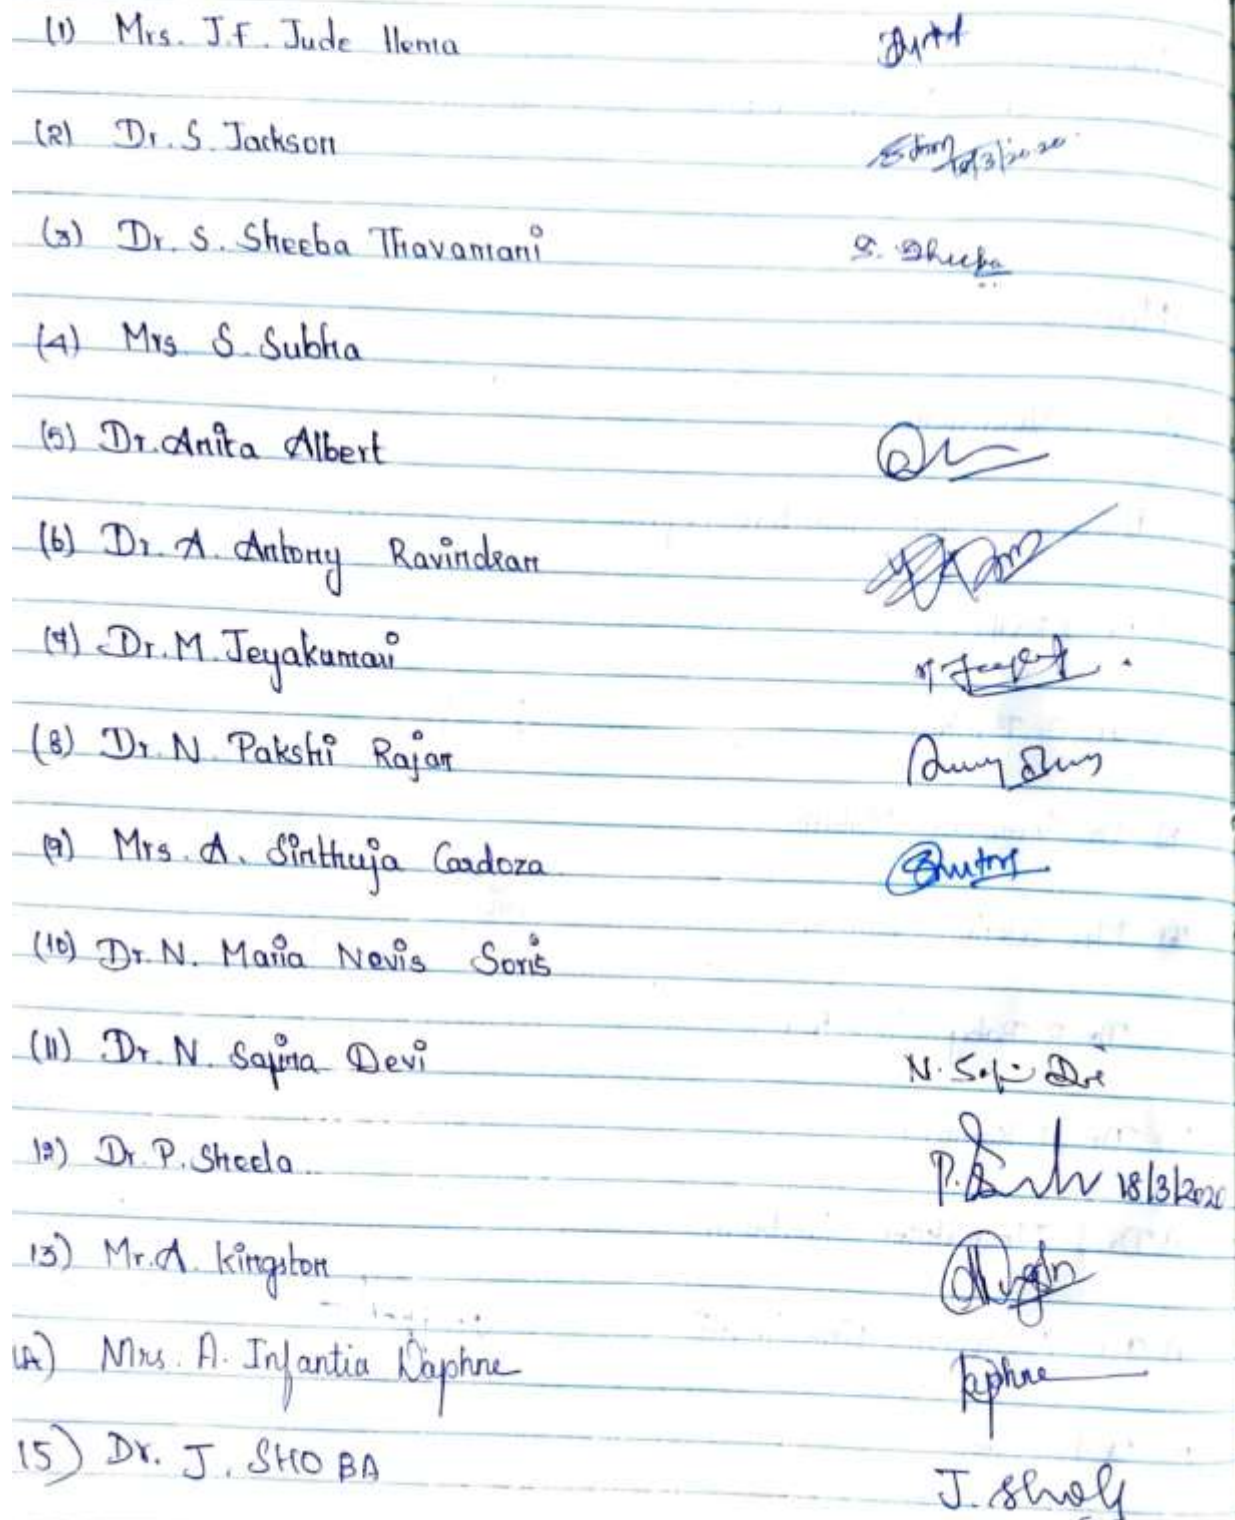 (1) Mrs. J.F. Jude Hema
(2) Dr. S. Jackson 18/3/2020
(3) Dr. S. Sheeba Thavamani S. Sheeba
(4) Mrs. S. Subha
(5) Dr. Anita Albert
(6) Dr. A. Antony Ravindran
(7) Dr. M. Jeyakumari
(8) Dr. N. Pakshi Rajan
(9) Mrs. A. Sinthuja Cardoza
(10) Dr. N. Maria Nevis Soris
(11) Dr. N. Sajina Devi
12) Dr. P. Sheela 18/3/2020
13) Mr. A. Kingston
14) Mrs. A. Infantia Daphne Daphne
15) Dr. J. SHOBA